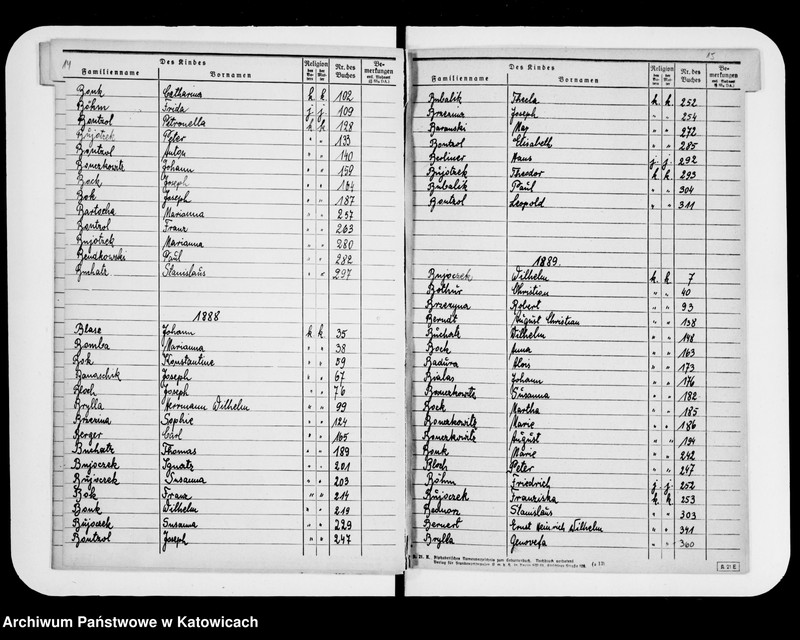 14
Des Kindes Religion Nr. des Buches Bemerkungen
Familienname Vornamen
Bonk Catharina k k 102
Böhm Frida j j 109
Bontzol Petronella k k 128
Bujotzek Peter " " 133
Bontzol Anton " " 140
Bonczkowitz Johann " " 158
Bock Joseph " " 184
Bok Joseph " " 187
Bartocha Marianna " " 257
Bontzol Franz " " 263
Bujotzek Marianna " " 280
Bendkowski Paul " " 282
Buchatz Stanislaus " " 297
1888
Blase Johann k k 35
Bomba Marianna " " 38
Bok Konstantine " " 59
Banaschik Joseph " " 67
Bloch Joseph " " 76
Brylla Herrmann Wilhelm " " 99
Brzezina Sophie " " 124
Berger Carl " " 165
Buchatz Thomas " " 189
Bujoczek Ignatz " " 201
Bujoczek Susanna " " 203
Bok Franz " " 214
Bonk Wilhelm " " 219
Bujoczek Susanna " " 229
Bontzol Joseph " " 247
15
Des Kindes Religion Nr. des Buches Bemerkungen
Familienname Vornamen
Bubalik Thecla k k 252
Brzezina Joseph " " 254
Baranski Max " " 272
Bontzol Elisabeth " " 285
Berliner Hans j j 292
Bujotzek Theodor k k 293
Bubalik Paul " " 304
Bontzol Leopold " " 311
1889.
Bujoczek Wilhelm k k 7
Bothur Christian " " 40
Brzezyna Robert " " 93
Berndt August Christian " " 138
Buchatz Wilhelm " " 148
Bock Anna " " 163
Badura Alois " " 173
Bialas Johann " " 176
Bonczkowitz Susanna " " 182
Bock Martha " " 185
Bonczkowitz Marie " " 186
Bonczkowitz August " " 194
Bonk Marie " " 242
Bloch Peter " " 247
Böhm Friedrich j j 252
Bujoczek Franziska k k 253
Bednorz Stanislaus " " 303
Bernert Ernst Heinrich Wilhelm " " 341
Brylla Genovefa " " 360
Archiwum Państwowe w Katowicach